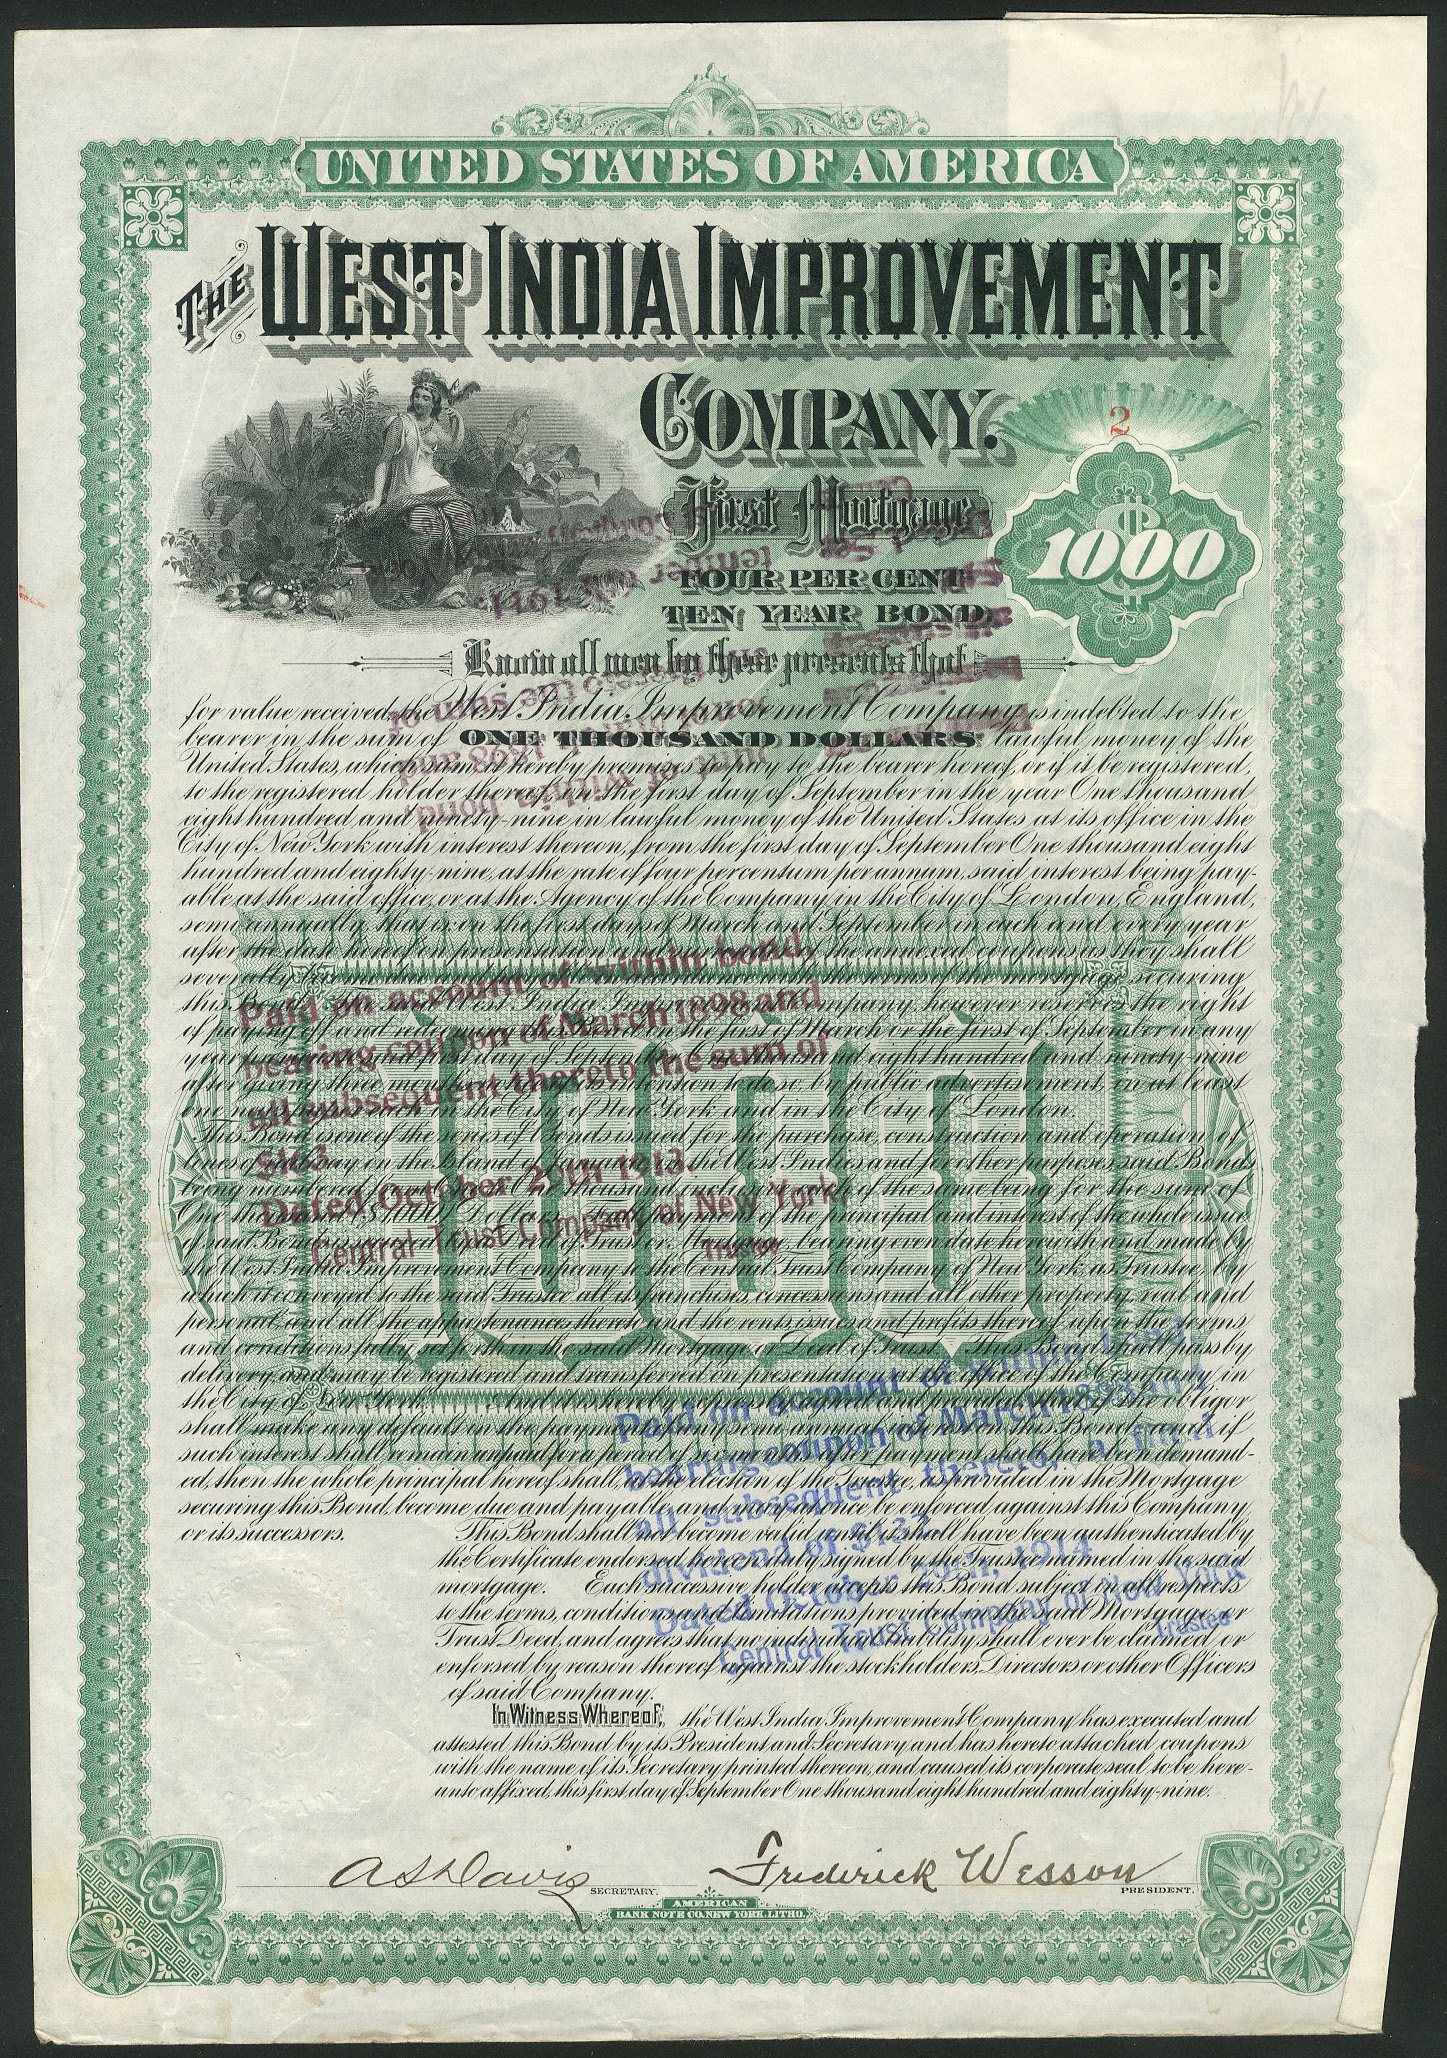 UNITED STATES OF AMERICA
THE WEST INDIA IMPROVEMENT
COMPANY.
2
First Mortgage
$1000
FOUR PER CENT
TEN YEAR BOND.
Know all men by these presents that
for value received, the West India Improvement Company, is indebted to the
bearer in the sum of ONE THOUSAND DOLLARS lawful money of the
United States, which sum it hereby promises to pay to the bearer hereof, or if it be registered,
to the registered holder thereof, on the first day of September in the year One thousand
eight hundred and ninety-nine in lawful money of the United States at its office in the
City of New York with interest thereon, from the first day of September One thousand eight
hundred and eighty-nine, at the rate of four per centum per annum, said interest being pay-
able at the said office, or at the Agency of the Company in the City of London, England,
semi annually, that is on the first days of March and September in each and every year
after the date hereof on presentation and the annexed coupons as they shall
severally the terms of the mortgage securing
this Bond. The West India Improvement Company, however reserves the right
of paying off and redeeming on the first of March or the first of September in any
year day of September eight hundred and ninety-nine
after giving three months intention to do so, by public advertisement, in at least
one newspaper in the City of New York and in the City of London.
This Bond is one of the series of Bonds issued for the purchase, construction and operation of
lines of railway on the Island of Jamaica in the West Indies and for other purposes, said Bonds
being numbered from One thousand of the same being for the sum of
One thousand Dollars payment of the principal and interest of the whole issue
of said Bonds is secured bearing even date herewith and made by
the West India Improvement Company to the Central Trust Company of New York, as Trustee, by
which it conveyed to the said Trustee all its franchises, concessions and all other property, real and
personal, and all the appurtenances thereto and the rents, issues and profits thereof upon the terms
and conditions fully set forth in the said Mortgage or Deed of Trust. This Bond shall pass by
delivery, and may be registered and transferred on presentation at the office of the Company in
the City of New York. And it is hereby the obligor
shall make any default in the payment of any semi annual on this Bond, and if
such interest shall remain unpaid for a period of after payment shall have been demand-
ed, then the whole principal hereof shall, at the election of the Trustee, as provided in the Mortgage
securing this Bond, become due and payable, and may at once be enforced against this Company,
or its successors. This Bond shall not become valid until it shall have been authenticated by
the Certificate endorsed hereon duly signed by the Trustee named in the said
mortgage. Each successive holder accepts this Bond subject in all respects
to the terms, conditions and limitations provided in the said Mortgage or
Trust Deed, and agrees that no individual liability shall ever be claimed, or
enforced by reason thereof against the stockholders, Directors or other Officers
of said Company.
In Witness Whereof, the West India Improvement Company has executed and
attested this Bond by its President and Secretary and has hereto attached coupons
with the name of its Secretary printed thereon, and caused its corporate seal to be here-
unto affixed, this first day of September One thousand eight hundred and eighty-nine.
Paid on account of within bond,
bearing coupon of March 1898 and
all subsequent thereto the sum of
$163
Dated, October 20th 1913.
Central Trust Company of New York
Trustee
Paid on account of within bond,
bearing coupon of March 1898 and
all subsequent thereto, a final
dividend of
Dated October 29th, 1914
Central Trust Company of New York
Trustee
A S Davis SECRETARY.
Frederick Wesson PRESIDENT.
AMERICAN
BANK NOTE CO. NEW YORK. LITHO.